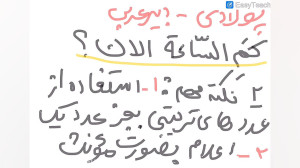 EasyTeach
پولادی - دبیر عربی
كَمِ السّاعَة الآن ؟
۲ نکته مهم: ۱- استفاده از
عدد های ترتیبی بجز عدد یک
۲- اعلام بصورت مونث